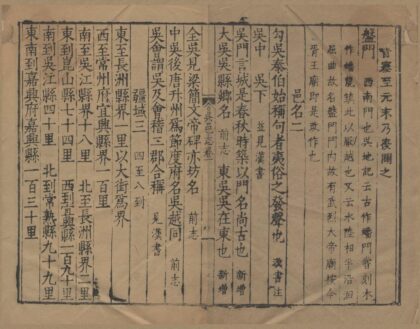 皆塞至元末乃復開之
盤門
西南門也吳地記云古作蟠門嘗刻木
作蟠龍鎮此以厭越也又云水陸相半沿洄
屈曲故名盤門門內故有武烈大帝廟
胥王廟即是故作也
邑名二
勾吳泰伯始稱句者夷俗之發聲也 漢書注
吳中 吳下 並見漢書
吳門言城是春秋時築以門名尚古也 新增
大吳吳縣鄉名 前志 東吳吳在東也 新增
全吳見梁簡文帝碑亦坊名 前志
中吳後唐升州為節度府名吳越同 前志
吳會謂吳及會稽二郡合稱 見漢書
疆域三 四至八到
東至長洲縣界一里以大街為界
西至常州府宜興縣界一百里
南至吳江縣界十八里 北至長洲縣界一里
東到崑山縣七十四里 西到長興縣一百九十里
南到吳江縣四十里 北到常熟縣九十九里
東南到嘉興府嘉興縣一百三十里